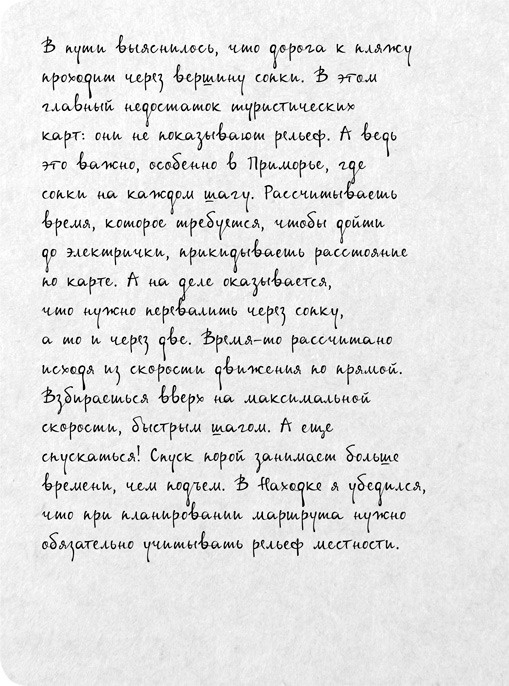 В пути выяснилось, что дорога к пляжу
проходит через вершину сопки. В этом
главный недостаток туристических
карт: они не показывают рельеф. А ведь
это важно, особенно в Приморье, где
сопки на каждом шагу. Рассчитываешь
время, которое требуется, чтобы дойти
до электрички, прикидываешь расстояние
по карте. А на деле оказывается,
что нужно перевалить через сопку,
а то и через две. Время-то рассчитано
исходя из скорости движения по прямой.
Взбираешься вверх на максимальной
скорости, быстрым шагом. А еще
спускаться! Спуск порой занимает больше
времени, чем подъем. В Находке я убедился,
что при планировании маршрута нужно
обязательно учитывать рельеф местности.